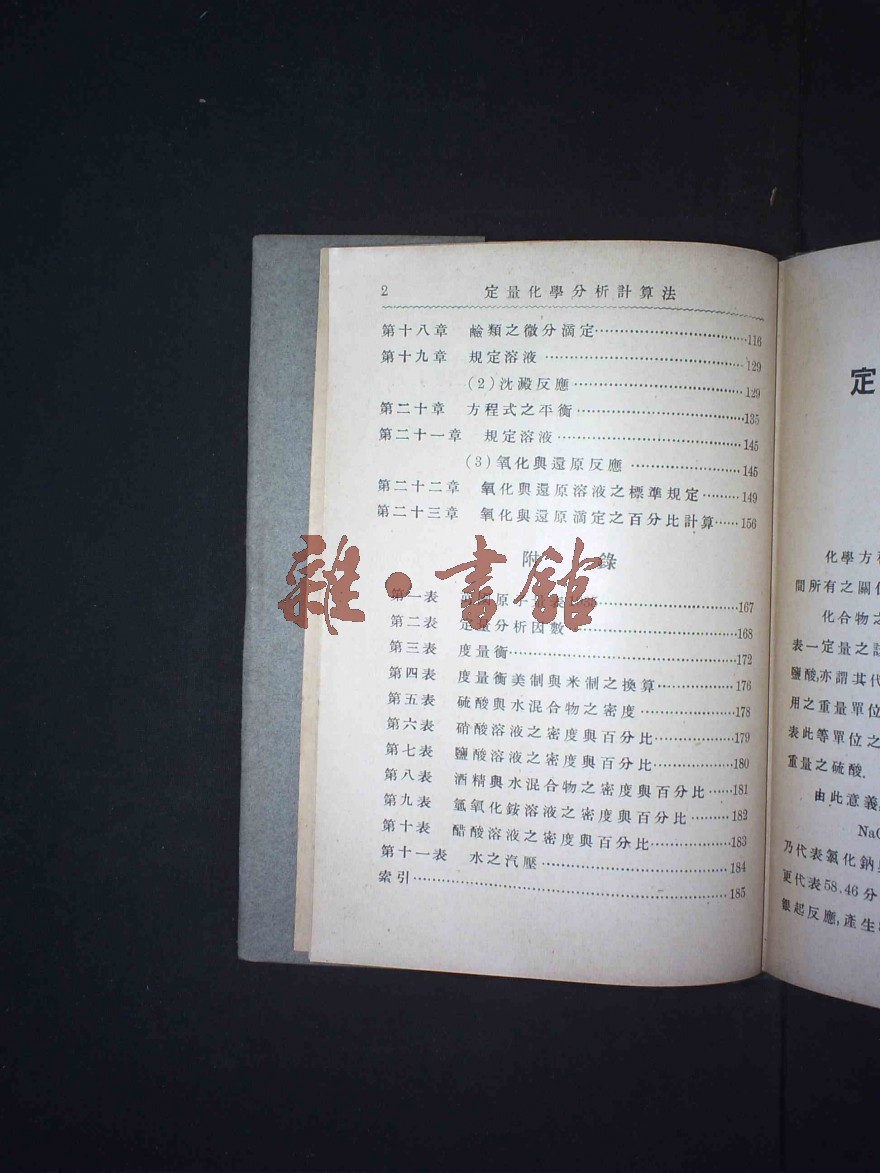 2 定量化學分析計算法
第十八章 鹼類之微分滴定……116
第十九章 規定溶液……129
(2)沈澱反應……129
第二十章 方程式之平衡……135
第二十一章 規定溶液……145
(3)氧化與還原反應……145
第二十二章 氧化與還原溶液之標準規定……149
第二十三章 氧化與還原滴定之百分比計算……156
附錄
雜·書館
第一表 原子量表1935……167
第二表 定量分析因數……168
第三表 度量衡……172
第四表 度量衡美制與米制之換算……176
第五表 硫酸與水混合物之密度……178
第六表 硝酸溶液之密度與百分比……179
第七表 鹽酸溶液之密度與百分比……180
第八表 酒精與水混合物之密度與百分比……181
第九表 氫氧化銨溶液之密度與百分比……182
第十表 醋酸溶液之密度與百分比……183
第十一表 水之汽壓……184
索引……185
定
化學方
間所有之關
化合物之
表一定量之
鹽酸,亦謂其代
用之重量單位
表此等單位之
重量之硫酸.
由此意義
Na
乃代表氯化鈉
更代表58.46分
銀起反應,產生